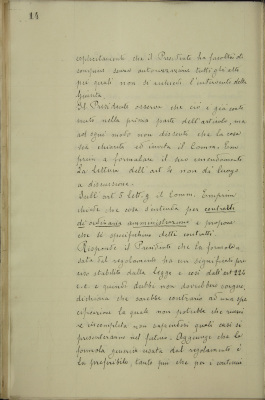 14
esplicitamente che il Presidente ha facoltà di
compiere senza autorizzazione tutti gli atti
pei quali non si richiede l'intervento della
Giunta.
Il Presidente osserva che ciò è già conte
nuto nella prima parte dell'articolo, ma
ad ogni modo non dissente che la cosa
sia chiarita ed invita il Comm.
a formulare il suo emendamento
La lettura dell'art. 4 non dà luogo
a discussione.
Sull'art. 5 lett. g il Comm.
chiede che cosa s'intenda per contratti
di ordinaria amministrazione e propone
che si specifichino detti contratti.
Risponde il Presidente che la formola
del regolamento ha un significato pre
ciso stabilito dalla legge e così dall'art. 224
e quindi dubbi non dovrebbero sorgere,
dichiara che sarebbe contrario ad una spe
cificazione la quale non potrebbe che riusci
re incompleta non sapendosi quali casi si
presenteranno nel futuro. Aggiunge che la
formola usata dal regolamento è
la preferibile, tanto più che per i contratti